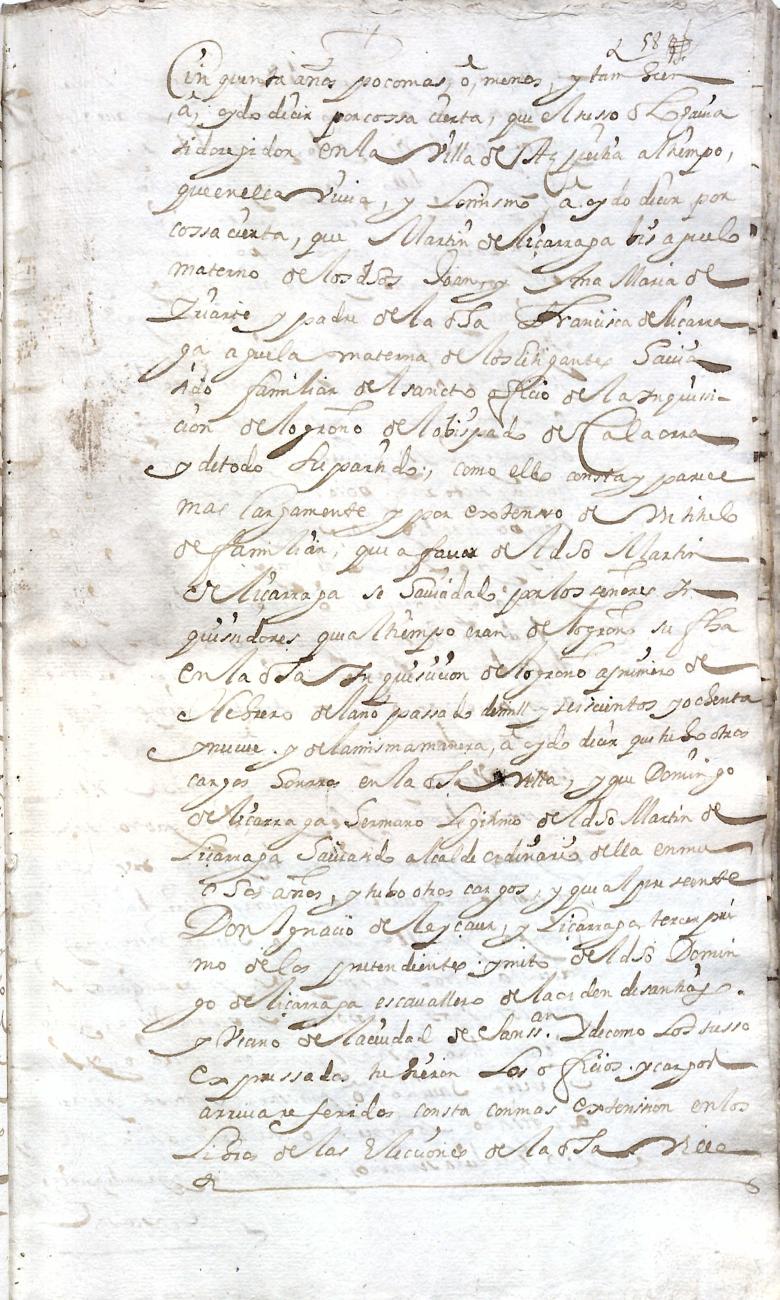 58
Cinquenta años poco mas, o, menos, y tambien
a, oydo decir por cossa cierta, que el susso dho havia
sido regidor en la Villa de Azpeitia al tiempo,
que en ella vivia, y lo mismo a oydo decir por
cossa cierta, que Martin de liçarraga bis aguelo
materno de los dhos Joan y Ana Maria de
Iriarte y padre de la dha Francisca de liçarra
ga aguela materna de los litigantes havia
sido familiar del sancto oficio de la Inquissi
cion de logroño del obispado de Calaorra
y de todo su partido, como ello consta y parece
mas largamente y por extensso de un titulo
de familiar, que a favor del dho Martin
de liçarraga se havia dado por los señores In
quisidores que al tiempo eran de logroño su fha
en la dha Inquisicion de logroño a primero de
Hebrero del año passado de mill y seiscientos y ochenta
y nueve. y de la misma manera, a oydo decir que tubo otros
cargos honrros en la dha villa, y que Domingo
de liçarraga hermano legitimo del dho Martin de
Liçarraga havia sido alcalde ordinario della en mu
chos años, y tubo otros cargos, y que al presente
Don Ignacio de Leyçaur, y Liçarraga tercer pri
mo de los pretendientes y nieto del dho Domin
go de liçarraga es cavallero de la orden de santiago.
y Vecino de la ciudad de San ss.an Y de como los susso
expressados tubieron los oficios y cargos
arriva referidos consta con mas extension en los
Libros de las Elecciones de la dha Villa